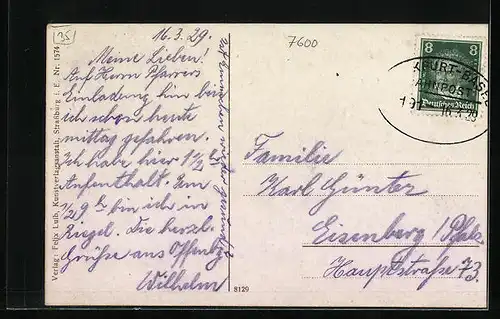 35
16.3.29.
7600
Meine Lieben!
Auf Herrn Pfarrers
Einladung hin bin
ich schon heute
mittag gefahren.
Ich habe hier 1 1/2
Aufenthalt. Um
1/2 9 h bin ich in
Riegel. Die herzl.
Grüße aus Offenbg
Wilhelm
wieder gesund?
Verlag: Felix Luib, Kunstverlagsanstalt, Straßburg i. E. Nr. 1574
8129
8 8
Deutsches Reich
FURT-BASEL
BAHNPOST
Familie
Karl Günter
Eisenberg / Pfalz
Hauptstraße 73.